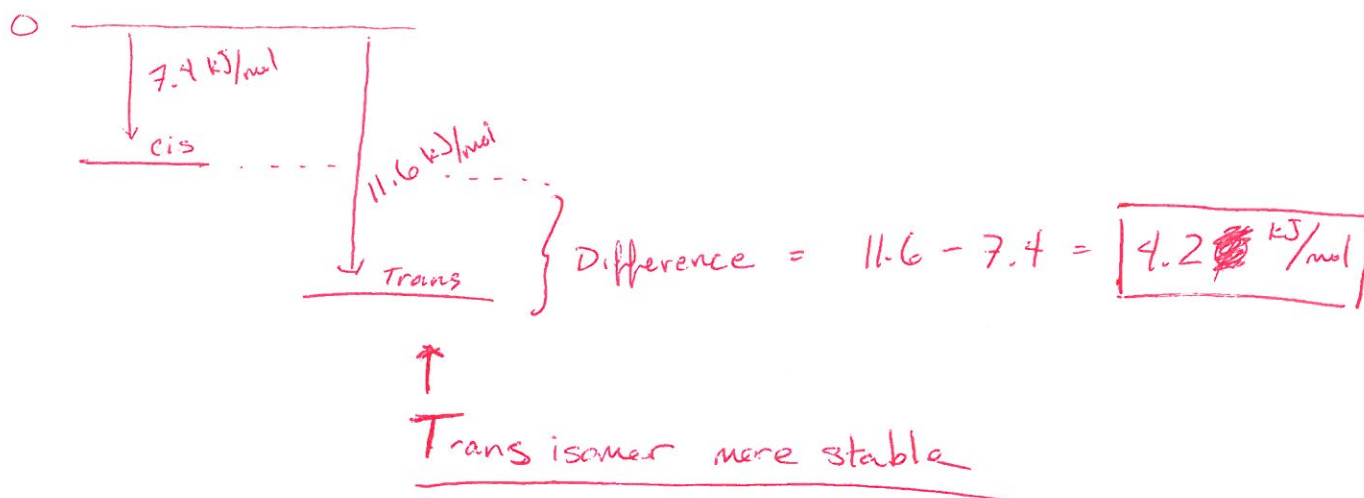 O
7.4 kJ/mol
cis
11.6 kJ/mol
Trans
Difference = 11.6 - 7.4 = 4.2 kJ/mol
Trans isomer more stable